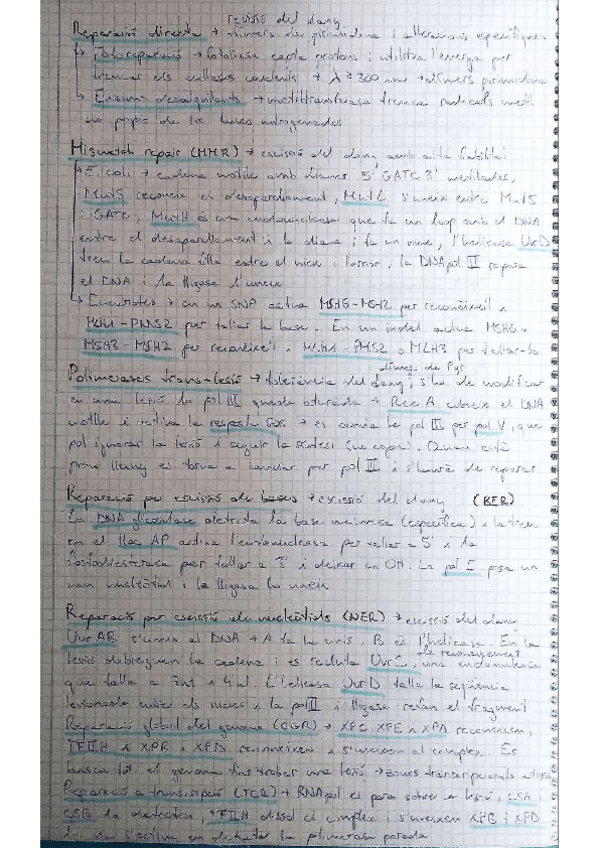 revisió del dany
Reparació directa → dímers de pirimidina i alteracions específiques
↳ fotoreparació → fotoliasa capta protons i utilitza l'energia per
trencar els enllaços covalents → λ ≥ 300 nm → dímers pirimidina
↳ Enzims desalquilants → metiltransferasa trenca radicals metil
propis de les bases nitrogenades
Mismatch repair (MMR) → escissió del dany amb alta fiabilitat
↳ E. coli → cadena motlle amb dianes 5' GATC 3' metilades,
MutS reconeix el desaparellament, MutL s'uneix entre MutS
i GATC, MutH és una endonucleasa que fa un loop amb el DNA
entre el desaparellament i la diana i fa un nick, l'helicasa UvrD
treu la cadena filla entre el nick i l'error, la DNA pol III repara
el DNA i la lligasa l'uneix
↳ Eucariotes → en un SNP activa MSH6-MSH2 per reconèixe'l i
MLH1-PMS2 per tallar la base. En un indel activa MSH6 o
MSH3-MSH2 per reconèixe'l i MLH1-PMS2 o MLH3 per tallar-la
dímers de Pyr
Polimerases trans-lesió → tolerància del dany; s'ha de modificar
en una lesió la pol III queda aturada → Rec A cobreix el DNA
motlle i activa la resposta SOS → es canvia la pol III per pol V, que
pot ignorar la lesió i seguir la síntesi (no copia). Quan està
prou lluny es torna a canviar per pol III i s'haurà de reparar
Reparació per escissió de bases → escissió del dany (BER)
La DNA glicosilasa detecta la base errònea (específica) i la treu
en el lloc AP actua l'endonucleasa per tallar a 5' i la
fosfodiesterasa per tallar a 3' i deixar un OH. La pol I posa un
nou nucleòtid i la lligasa lo uneix
Reparació per escissió de nucleòtids (NER) → escissió del dany
UvrAB s'uneix al DNA → A fa la unió, B és l'helicasa. En la
de reconeixement
lesió dobleguen la cadena i es recluta UvrC, una endonucleasa
que talla a 5nt i 4nt. L'helicasa UvrD talla la seqüència
lesionada entre els nicks i la pol I i lligasa refan el fragment
Reparació global del genoma (GGR) → XPC XPE i XPA reconeixen,
TFIIH i XPB i XPD reconeixen i s'uneixen al complex. Es
busca tot el genoma fins trobar una lesió → zones transcripcionals
Reparació a transcripció (TCR) → RNA pol es para sobre la lesió, CSA
CSB la detecten, TFIIH dissol el complex i s'uneixen XPB i XPD
s'activa en detectar la polimerasa parada